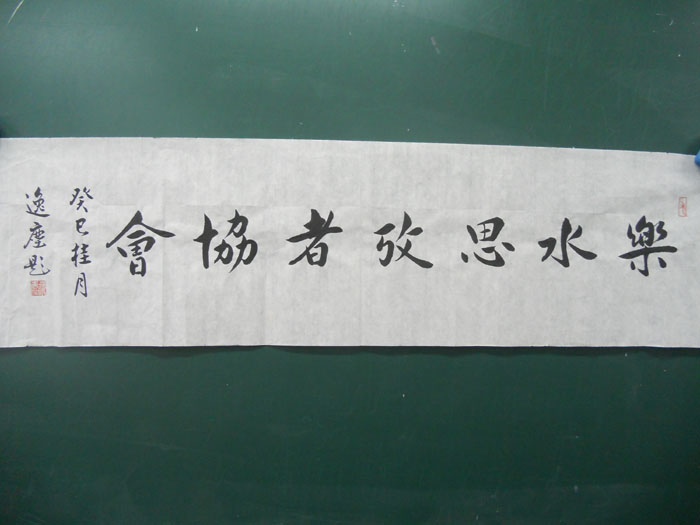 樂水思攷者協會
癸巳桂月
逸塵題